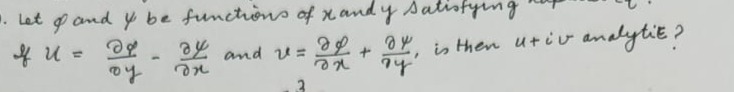 . Let φ and ψ be functions of x and y satisfying
If u = ∂φ/∂y - ∂ψ/∂x and v = ∂φ/∂x + ∂ψ/∂y, is then u+iv analytic?